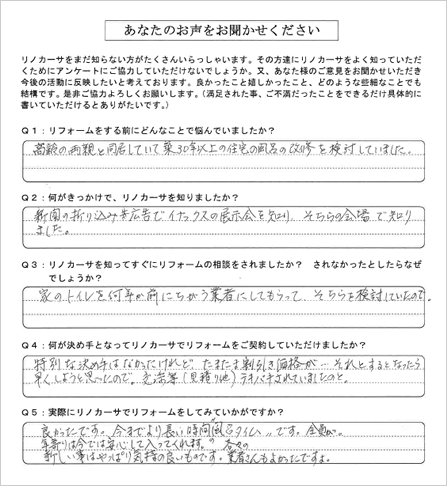 あなたのお声をお聞かせください
リノカーサをまだ知らない方がたくさんいらっしゃいます。その方達にリノカーサをよく知っていただ
くためにアンケートにご協力していただけないでしょうか。又、あなた様のご意見をお聞かせいただき
今後の活動に反映したいと考えております。良かったこと嬉しかったこと、どのような些細なことでも
結構です。是非ご協力よろしくお願いします。（満足された事、ご不満だったことをできるだけ具体的に
書いていただけるとありがたいです。）
Q１：リフォームをする前にどんなことで悩んでいましたか？
高齢の両親と同居していて築30年以上の住宅の風呂の改修を検討していました。
Q２：何がきっかけで、リノカーサを知りましたか？
新聞の折り込み広告でイナックスの展示会を知り、そちらの会場で知り
ました。
Q３：リノカーサを知ってすぐにリフォームの相談をされましたか？　されなかったとしたらなぜ
でしょうか？
家のトイレを何年か前にちがう業者にしてもらって、そちらを検討していたので。
Q４：何が決め手となってリノカーサでリフォームをご契約していただけましたか？
特別な決め手はなかったけれど、たまたま割引き価格が…それとするとなったら
早くしようと思ったので。交渉等（見積り他）テキパキされていましたのと。
Q５：実際にリノカーサでリフォームをしてみていかがですか？
良かったです。今までより長い時間"風呂タイム"です。
年寄りは今では安心して入ってくれます。
新しい事はやっぱり気持の良いものです。業者さんもよかったですよ。